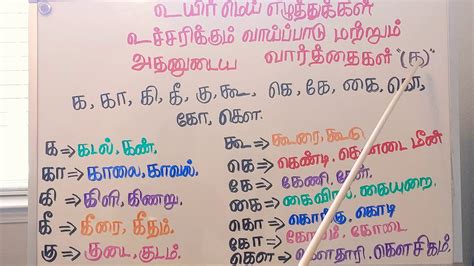 உயிர்மெய் எழுத்துக்கள்
உச்சரிக்கும் வாய்ப்பாடு மற்றும்
அதனுடைய வார்த்தைகள் "(க)"
க, கா, கி, கீ, கு, கூ, கெ, கே, கை, கொ,
கோ, கௌ.
க => கடல், கண்.
கா => காலை, காவல்.
கி => கிளி, கிணறு.
கீ => கீரை, கீதம்.
கு => குடை, குடம்.
கூ => கூரை, கூடு
கெ => கெண்டி, கெளடை மீன்
கே => கேணி, கேள்.
கை => கைவிரல், கையுறை.
கொ => கொக்கு, கொடி
கோ => கோலம், கோடை
கௌ => கௌதாரி, கௌசிகம்.